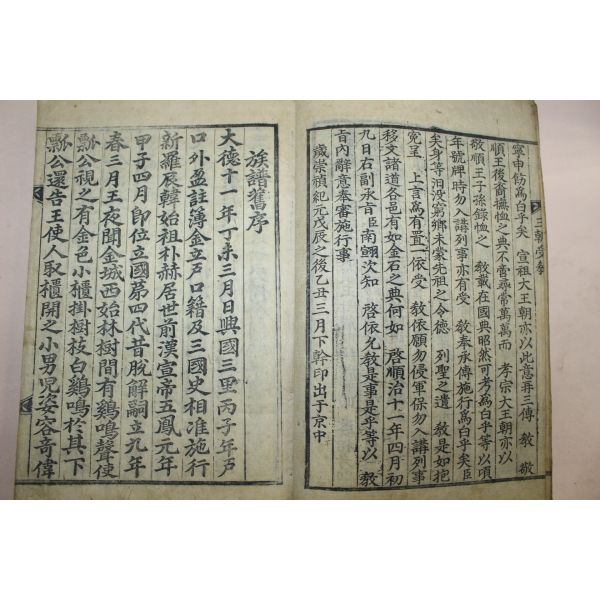 三朝受敎
寧申飭為乎矣 宣祖大王朝亦以此意再三傳 敎 敬
順王後裔撫恤之典不啻尋常萬萬而 孝宗大王朝亦以
敬順王子孫錄恤之 敎載在國典昭然可考為白乎等以頃
年號牌時勿入講列事亦有受 敎奉承傳施行為白乎矣臣
矣身等汨没窮鄉未蒙先祖之令德 列聖之遺 敎是如把
寃呈 上言為有置一依受 敎依願勿侵軍保勿入講列事
移文諸道各邑有如金石之典何如 啓順治十一年四月初
九日右副承旨臣南翧次知 啓依允敎是事是乎等以 敎
旨內辭意奉審施行事
歲崇禎紀元戊辰之後乙丑三月下幹印出于京中
族譜舊序
大德十一年丁未三月日興國三里丙子年戶
口外盈註簿金立戶口籍及三國史相准施行
新羅辰韓始祖朴赫居世前漢宣帝五鳳元年
甲子四月即位立國苐四代昔脫解嗣立九年
春三月王夜聞金城西始林樹間有鷄鳴聲使
瓢公視之有金色小櫃掛樹枝白鷄鳴於其下
瓢公還告王使人取櫃開之小男児姿容奇偉